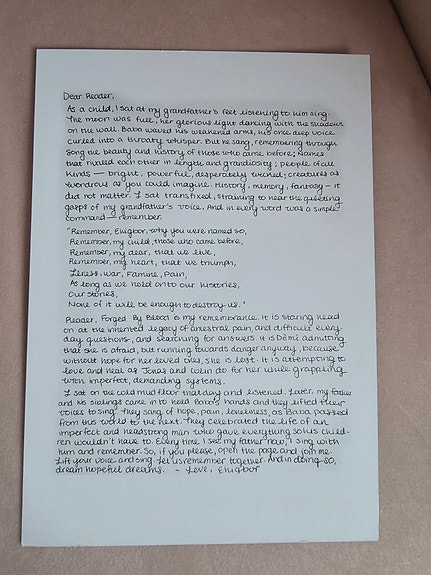 Dear Reader,
As a child, I sat at my grandfather's feet listening to him sing.
The moon was full, her glorious light dancing with the shadows
on the wall. Baba waved his weakened arms, his once deep voice
curled into a throaty whisper. But he sang, remembering through
song the beauty and history of those who came before; Names
that rivaled each other in length and grandiosity; people of all
kinds — bright, powerful, desperately wicked; creatures as
wondrous as you could imagine. History, memory, fantasy — it
did not matter. I sat transfixed, straining to hear the
gasps of my grandfather's voice. And in every word was a simple
command — remember.
"Remember, Ehigbor, why you were named so,
Remember, my child, those who came before,
Remember, my dear, that we live,
Remember, my heart, that we triumph,
Illness, war, famine, pain,
As long as we hold onto our histories,
Our stories,
None of it will be enough to destroy us."
Reader, Forged By Blood is my remembrance. It is staring head
on at the inherited legacy of ancestral pain, and difficult every-
day questions, and searching for answers. It is Dèmi admitting
that she is afraid, but running towards danger anyway, because
without hope for her loved ones, she is lost. It is attempting to
love and heal as Jonas and Colin do for her while grappling
with imperfect, demanding systems.
I sat on the cold mud floor that day and listened. Later, my father
and his siblings came in to hold Baba's hands and they lifted their
voices to sing. They sang of hope, pain, loneliness, as Baba passed
from this world to the next. They celebrated the life of an
imperfect and headstrong man who gave everything so his child-
ren wouldn't have to. Every time I see my father now, I sing with
him and remember. So, if you please, open the page and join me.
Lift your voice and sing. Let us remember together. And in doing so,
dream hopeful dreams. - Love, Ehigbor